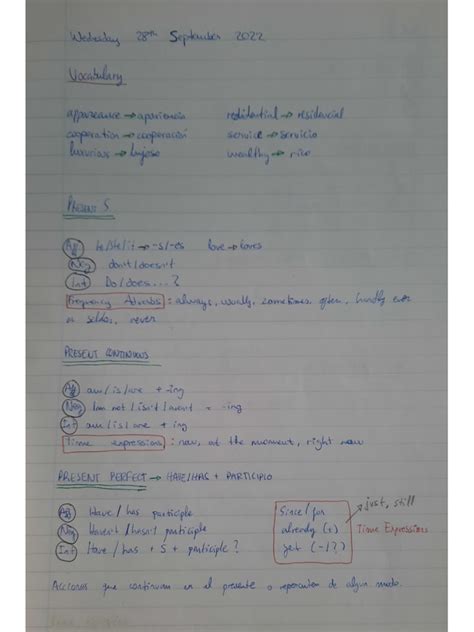 Wednesday 28th September 2022
Vocabulary
appareance → apariencia residential → residencial
cooperation → cooperación service → servicio
luxurius → lujoso wealthy → rico
PRESENT S
Af he/she/it → -s/-es love → loves
Neg don't/doesn't
Int Do/does...?
Frequency Adverbs : always, usually, sometimes, often, hardly ever
or seldom, never
PRESENT CONTINUOUS
Af am/is/are + -ing
Neg I am not / isn't / aren't + -ing
Int am/is/are + -ing
Time expressions : now, at the moment, right now
PRESENT PERFECT → HAVE/HAS + PARTICIPIO
Af Have / has participle
Neg Haven't / hasn't participle
Int Have / has + S + participle?
Since/for
already (+)
yet (-/?)
just, still
Time Expressions
Acciones que continuan en el presente o repercuten de algun modo.